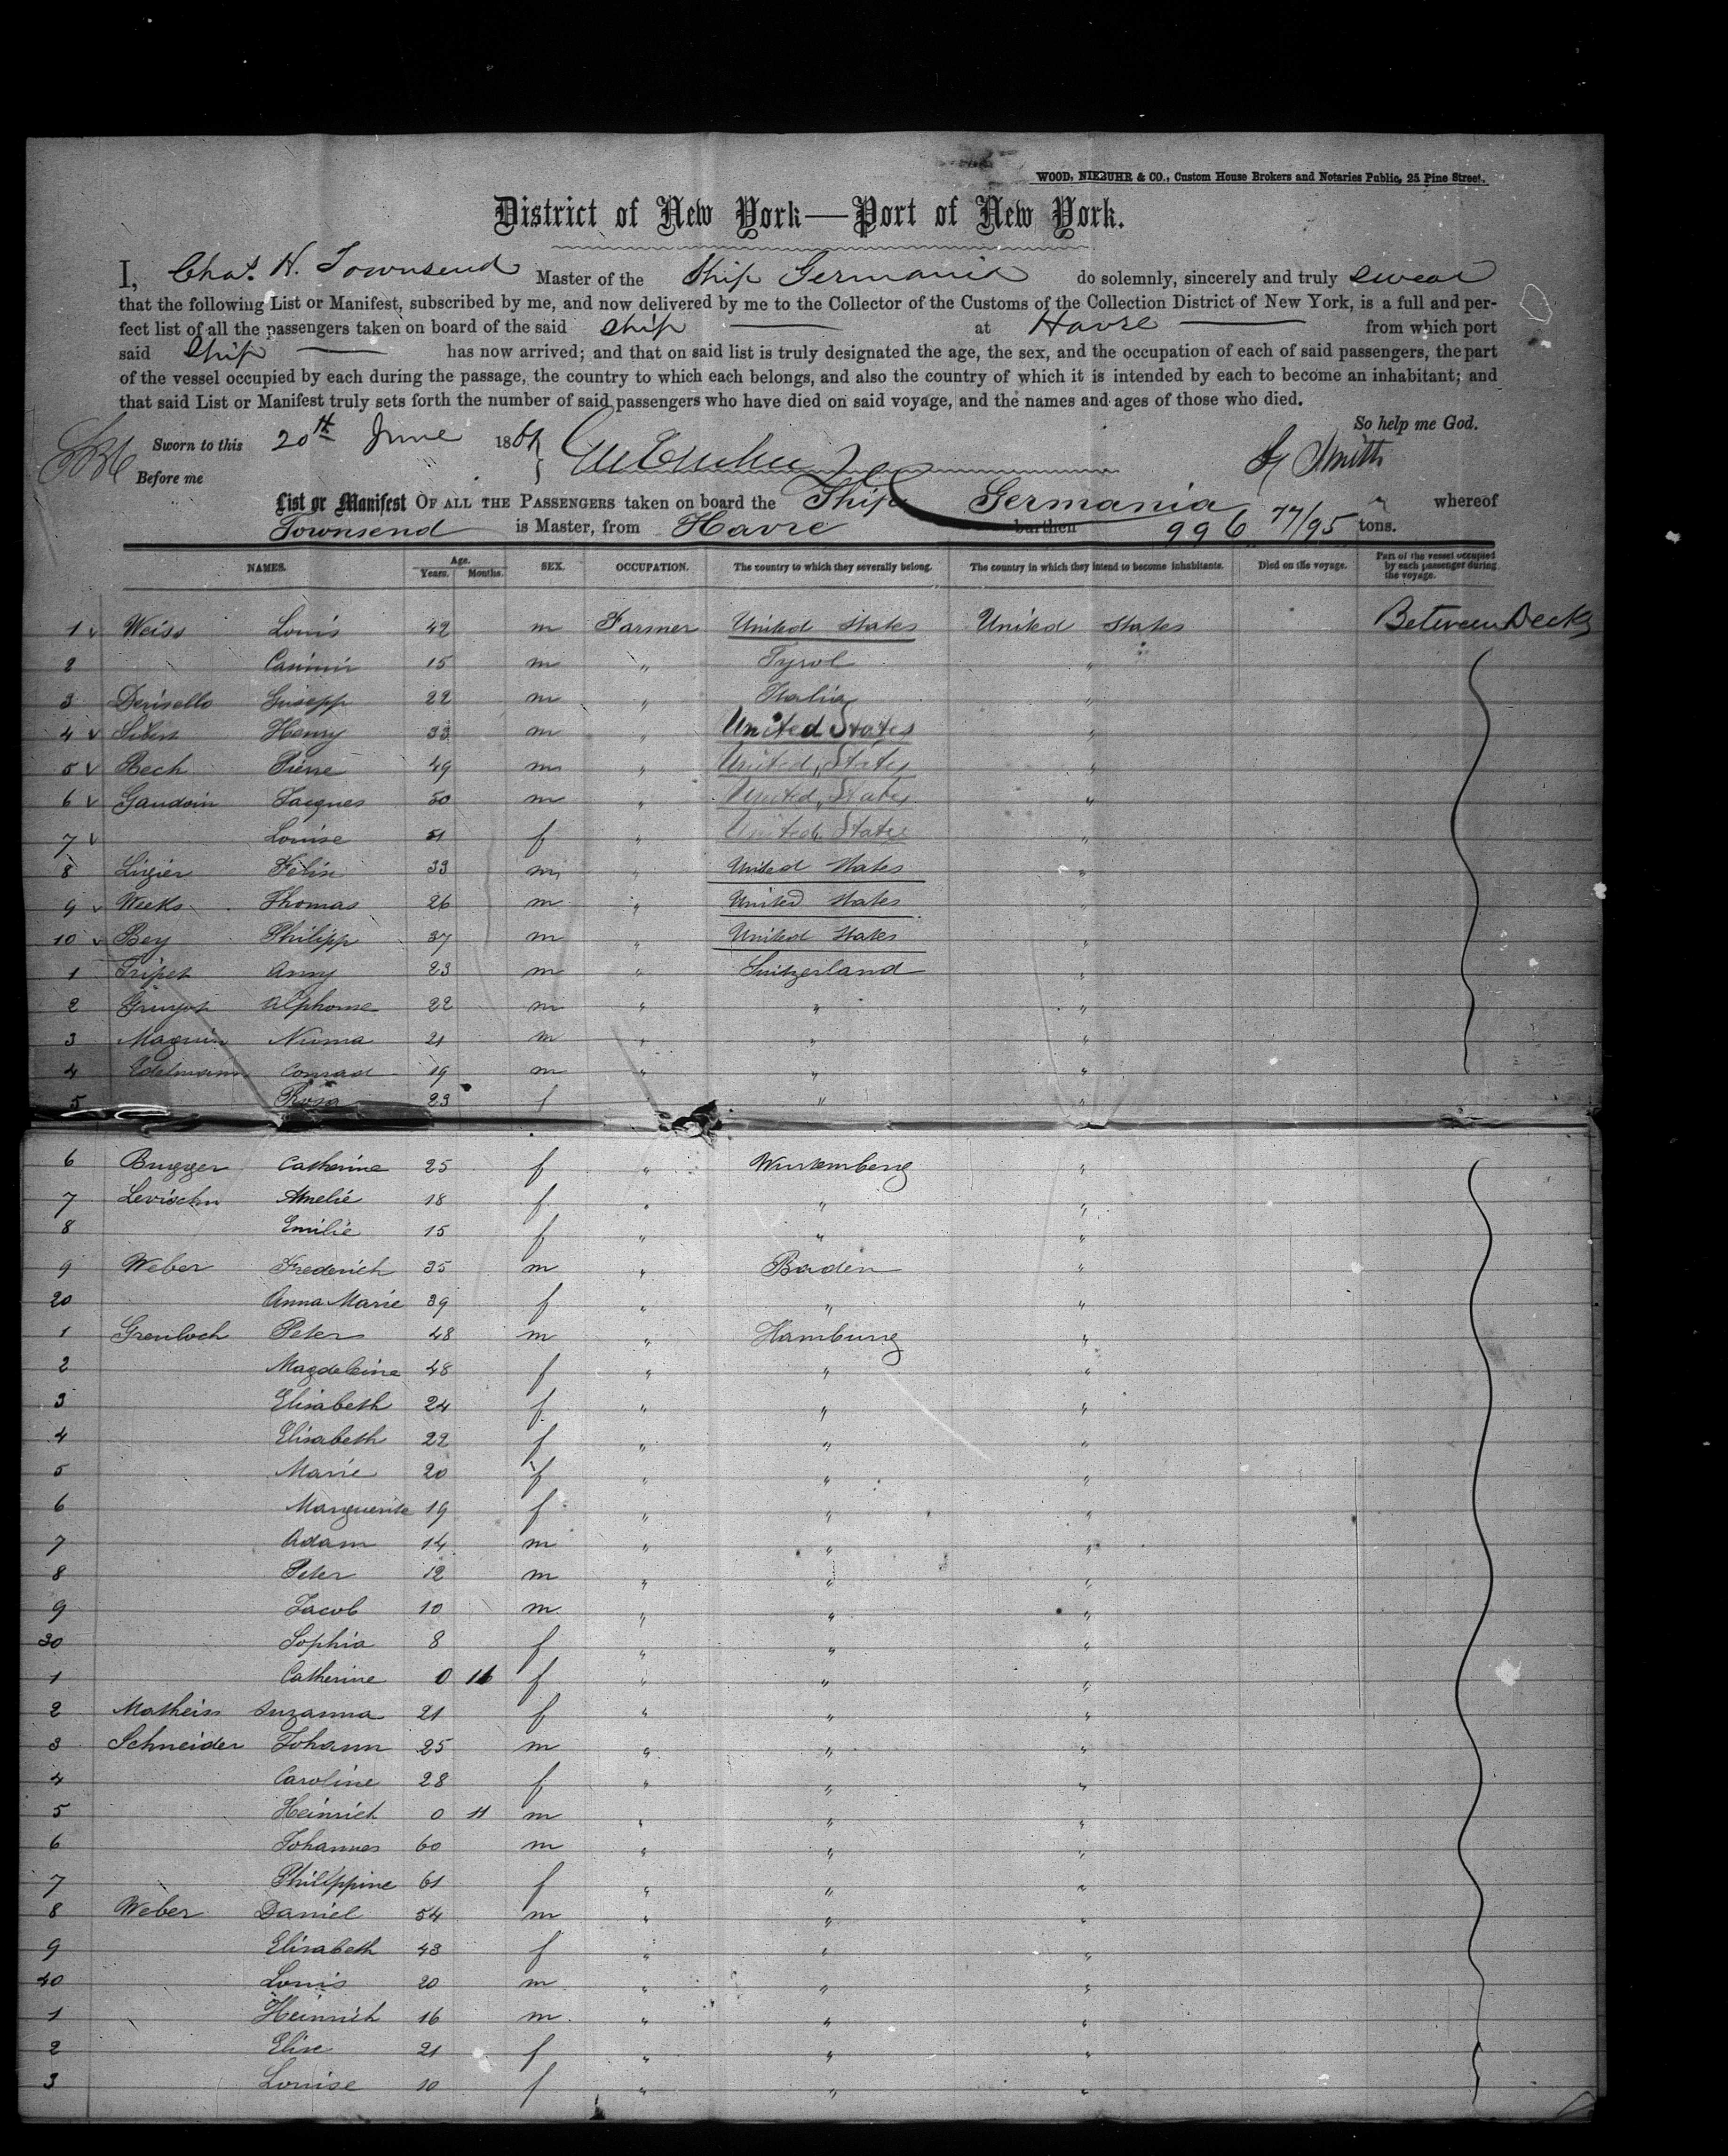 WOOD, NIEBUHR & CO., Custom House Brokers and Notaries Public, 25 Pine Street.
District of New York—Port of New York.
I, Chas. H. Townsend Master of the Ship Germania do solemnly, sincerely and truly swear
that the following List or Manifest, subscribed by me, and now delivered by me to the Collector of the Customs of the Collection District of New York, is a full and per-
fect list of all the passengers taken on board of the said ship at Havre from which port
said Ship has now arrived; and that on said list is truly designated the age, the sex, and the occupation of each of said passengers, the part
of the vessel occupied by each during the passage, the country to which each belongs, and also the country of which it is intended by each to become an inhabitant; and
that said List or Manifest truly sets forth the number of said passengers who have died on said voyage, and the names and ages of those who died.
So help me God.
Sworn to this 20th June 186
Before me
Smith
List or Manifest OF ALL THE PASSENGERS taken on board the Ship Germania whereof
Townsend is Master, from Havre burthen 996 77/95 tons.
NAMES. Age. Years. Months. SEX. OCCUPATION. The country to which they severally belong. The country in which they intend to become inhabitants. Died on the voyage. Part of the vessel occupied by each passenger during the voyage.
1 Weiss Louis 42 m Farmer United States United States Between Decks
2 Casimir 15 m " Tyrol "
3 Derisello Giusepp 22 m " Italia "
4 Henry 33 m " United States "
5 Rech Pierre 49 m " United States "
6 Gaudoin Jacques 50 m " United States "
7 Louise 51 f " United States "
8 Lizier Felix 33 m " United States "
9 Weeks Thomas 26 m " United States "
10 Bey Philipp 37 m " United States "
1 Tripet Amy 23 m " Switzerland "
2 Alphonse 22 m " " "
3 Maguin Numa 21 m " " "
4 Edelmann Conrad 19 m " " "
5 Rosa 23 f " "
6 Brugger Catherine 25 f " Wurtemberg "
7 Levischn Amelie 18 f " " "
8 Emilie 15 f " " "
9 Weber Frederich 35 m " Baden "
20 Anna Marie 39 f " " "
1 Grenloch Peter 48 m " Hamburg "
2 Magdeleine 48 f " " "
3 Elisabeth 24 f " " "
4 Elisabeth 22 f " " "
5 Marie 20 f " " "
6 Marguerite 19 f " " "
7 Adam 14 m " " "
8 Peter 12 m " " "
9 Jacob 10 m " " "
30 Sophia 8 f " " "
1 Catherine 0 f " " "
2 Matheiss Suzanna 21 f " " "
3 Schneider Johann 25 m " " "
4 Caroline 28 f " " "
5 Heinrich 0 11 m " " "
6 Johannes 60 m " " "
7 Philippine 61 f " " "
8 Weber Daniel 54 m " " "
9 Elisabeth 43 f " " "
40 Louis 20 m " " "
1 Heinrich 16 m " " "
2 Elise 21 f " " "
3 Louise 10 f " " "